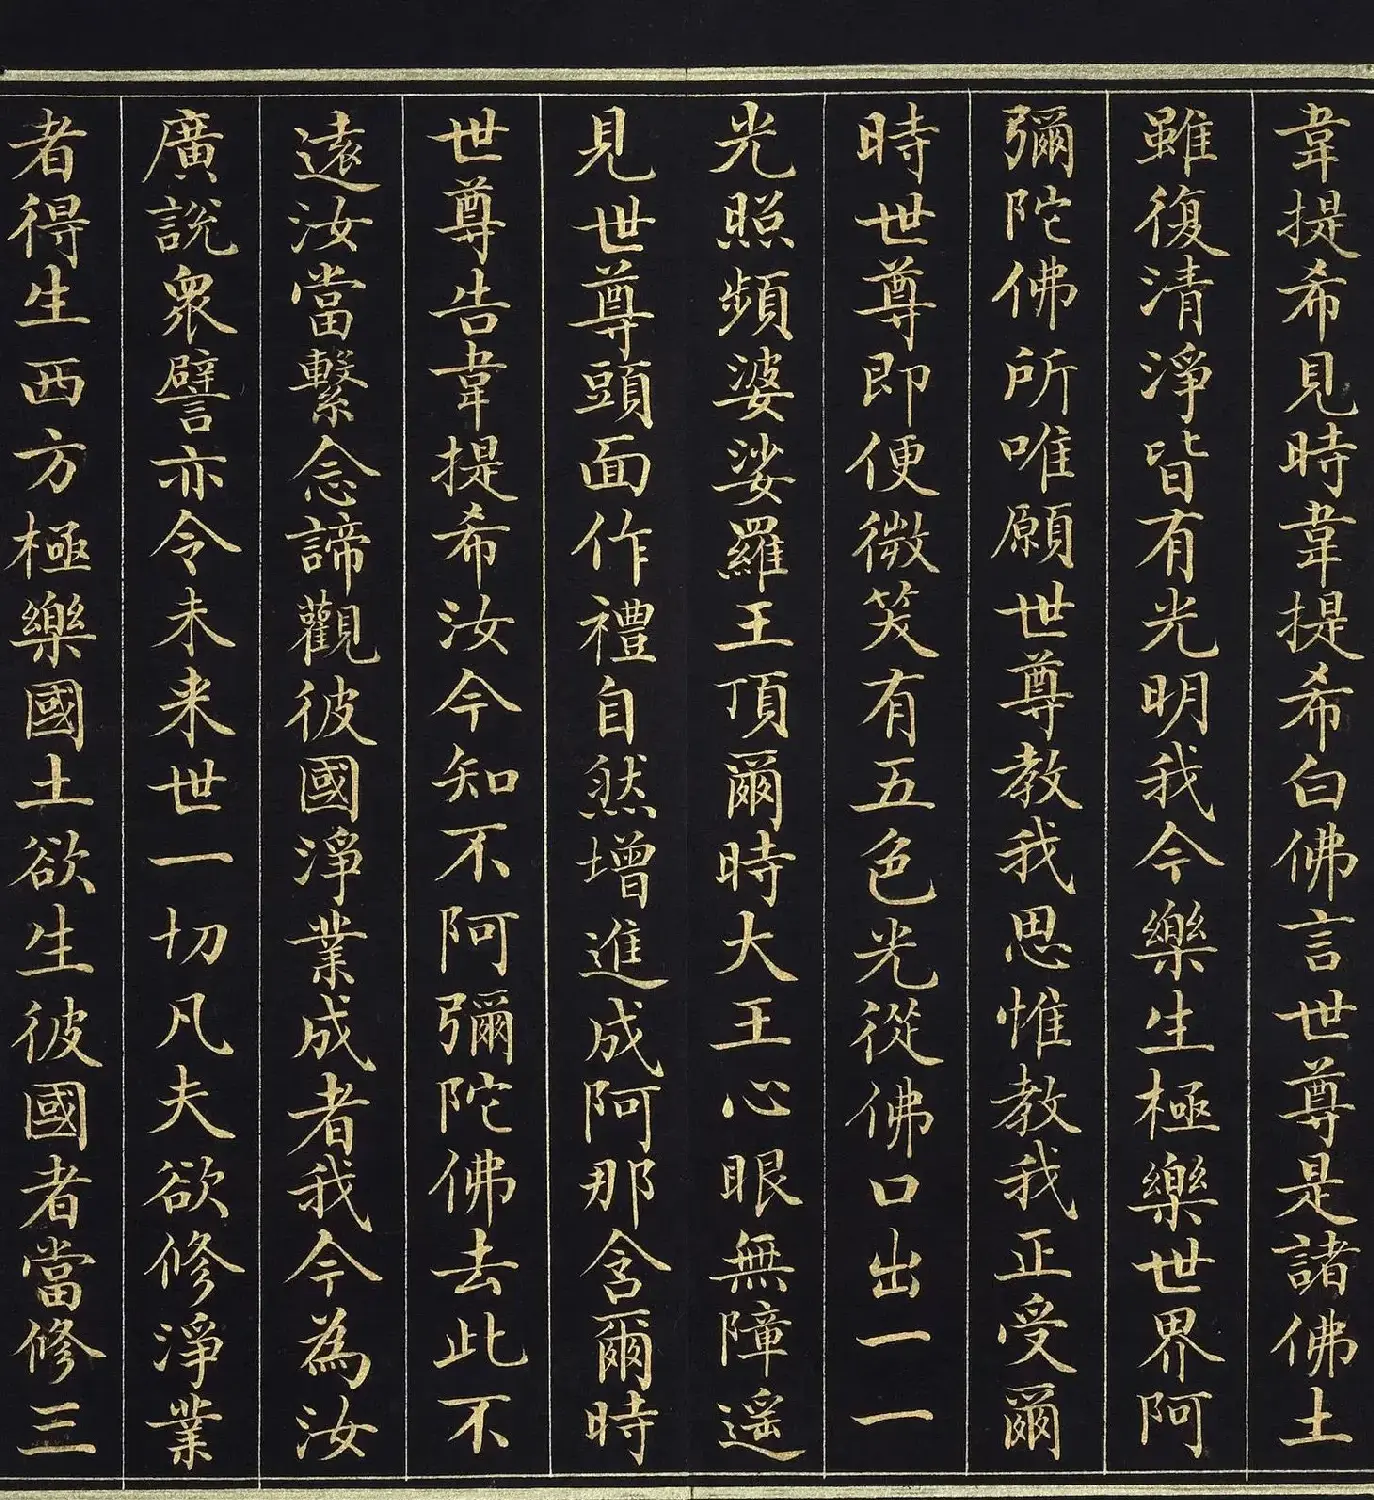 韋提希見時韋提希白佛言世尊是諸佛土
雖復清淨皆有光明我今樂生極樂世界阿
彌陀佛所唯願世尊教我思惟教我正受爾
時世尊即便微笑有五色光從佛口出一一
光照頻婆娑羅王頂爾時大王心眼無障遥
見世尊頭面作禮自然增進成阿那含爾時
世尊告韋提希汝今知不阿彌陀佛去此不
遠汝當繫念諦觀彼國淨業成者我今為汝
廣說衆譬亦令未来世一切凡夫欲修淨業
者得生西方極樂國土欲生彼國者當修三